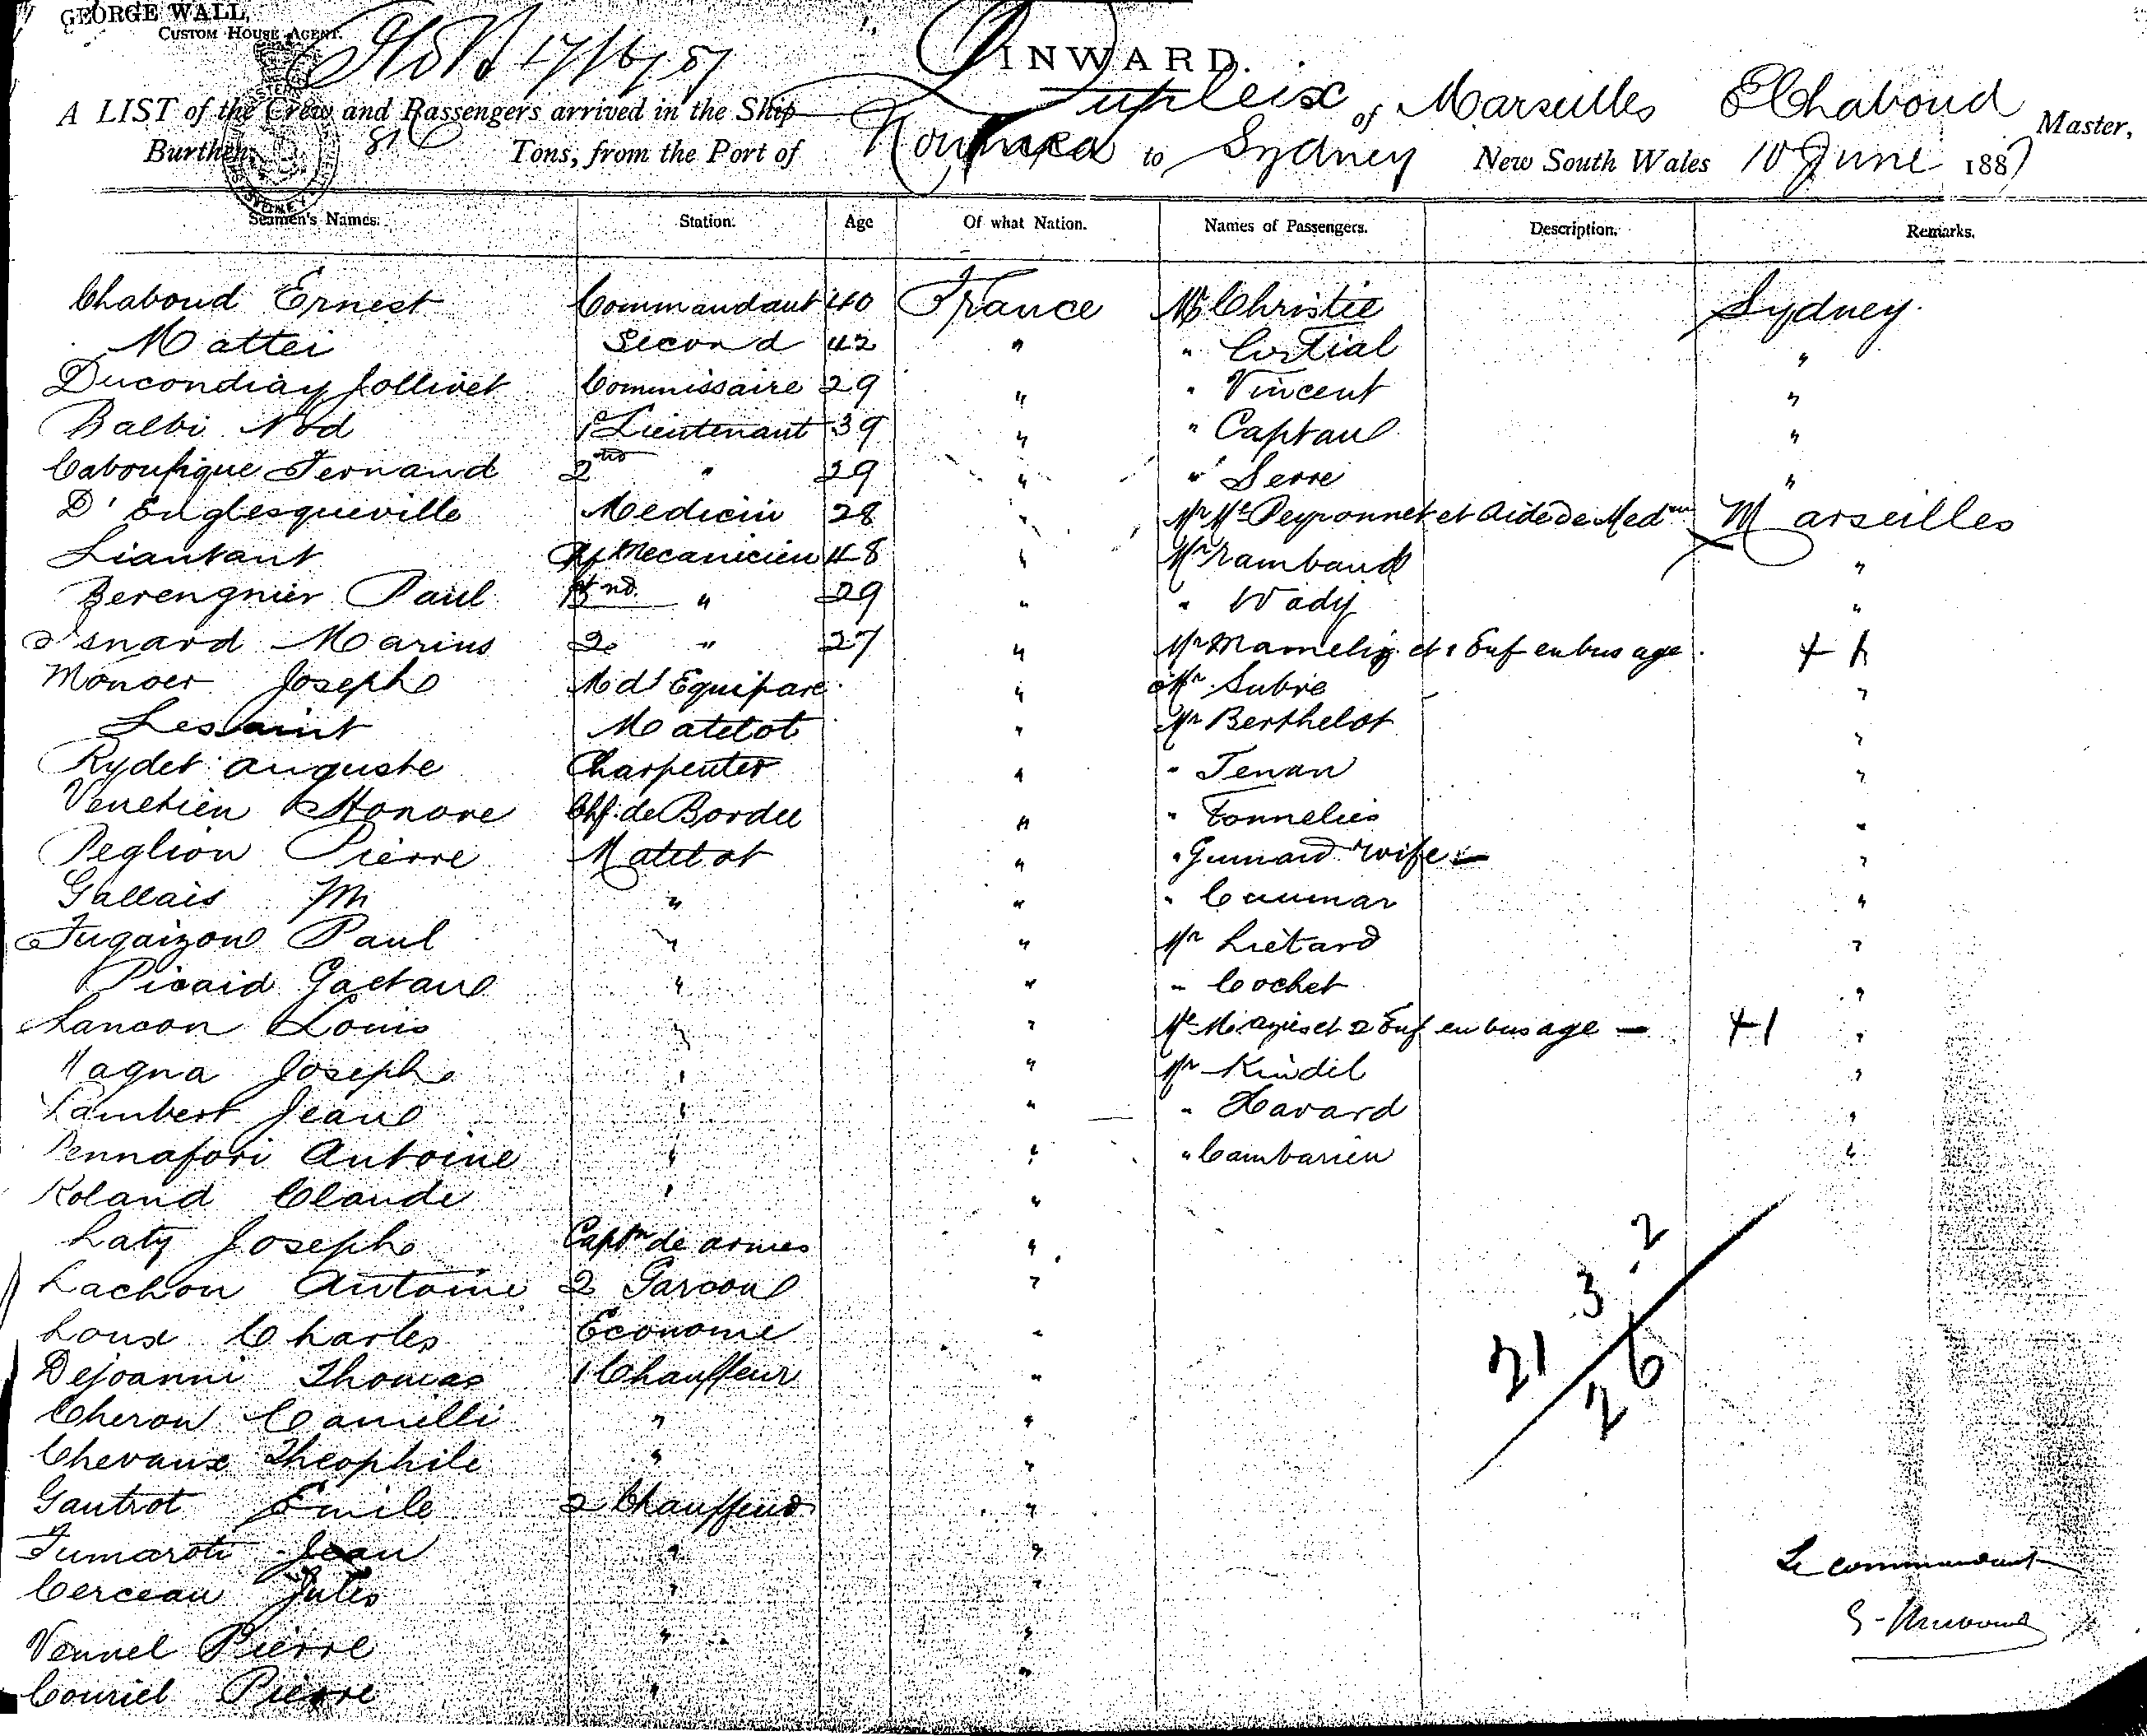 GEORGE WALL,
CUSTOM HOUSE AGENT.
INWARD.
A LIST of the Crew and Passengers arrived in the Ship Dupleix of Marseilles E Chaboud Master,
Burthen 816 Tons, from the Port of Noumea to Sydney New South Wales 10 June 1887
Seamen's Names. Station. Age Of what Nation. Names of Passengers. Description. Remarks.
Chaboud Ernest Commandant 40 France Mr Christie Sydney.
Mattei Second 42 " " Cortial "
Ducondiay Jollivet Commissaire 29 " " Vincent "
Balbi Nod 1 Lieutenant 39 " " Captaul "
Caboufigue Fernand 2 " 29 " " Serre "
D'Englesqueville Medicin 28 " Mr Me Peyronnet et Aide de Med Marseilles
Liantant Mecanicien 48 " Mr rambaud "
Berengnier Paul nd " 29 " " Wady "
Isnard Marius 2e " 27 " Mr Mamelig et 1 Enf en bus age. +
Monoer Joseph M d'Equipare " Mr Subre "
Lessaint Matelot " Mr Berthelot "
Rydet auguste Charpenter " " Tenan "
Venetien Honore Chf. de Bordee " " Tonnelies "
Peglion Pierre Matelot " " Gumard wife "
Gallais M " " " Caumar "
Fugaizon Paul " " Mr Liétard "
Picaid Gaetan " " " Cochet "
Lancon Louis " " Me Magis et 2 Enf en bus age — +1 "
Magna Joseph " " Mr Kindil "
Lambert Jean " " " Havard "
Pennafori Antoine " " " Cambarien "
Roland Claude " "
Laty Joseph Captn de armes "
Lachon Antoine 2 Garcon "
Loux Charles Econome "
Dejoanni Thomas 1 Chauffeur "
Cheron Camilli " "
Chevaux Theophile " "
Gautrot Emile 2 Chauffeur "
Fumaroti Jean " "
Cerceau Jules " "
Vennel Pierre " "
Couriel Pierre " "
21 3 2
26
Le commandant